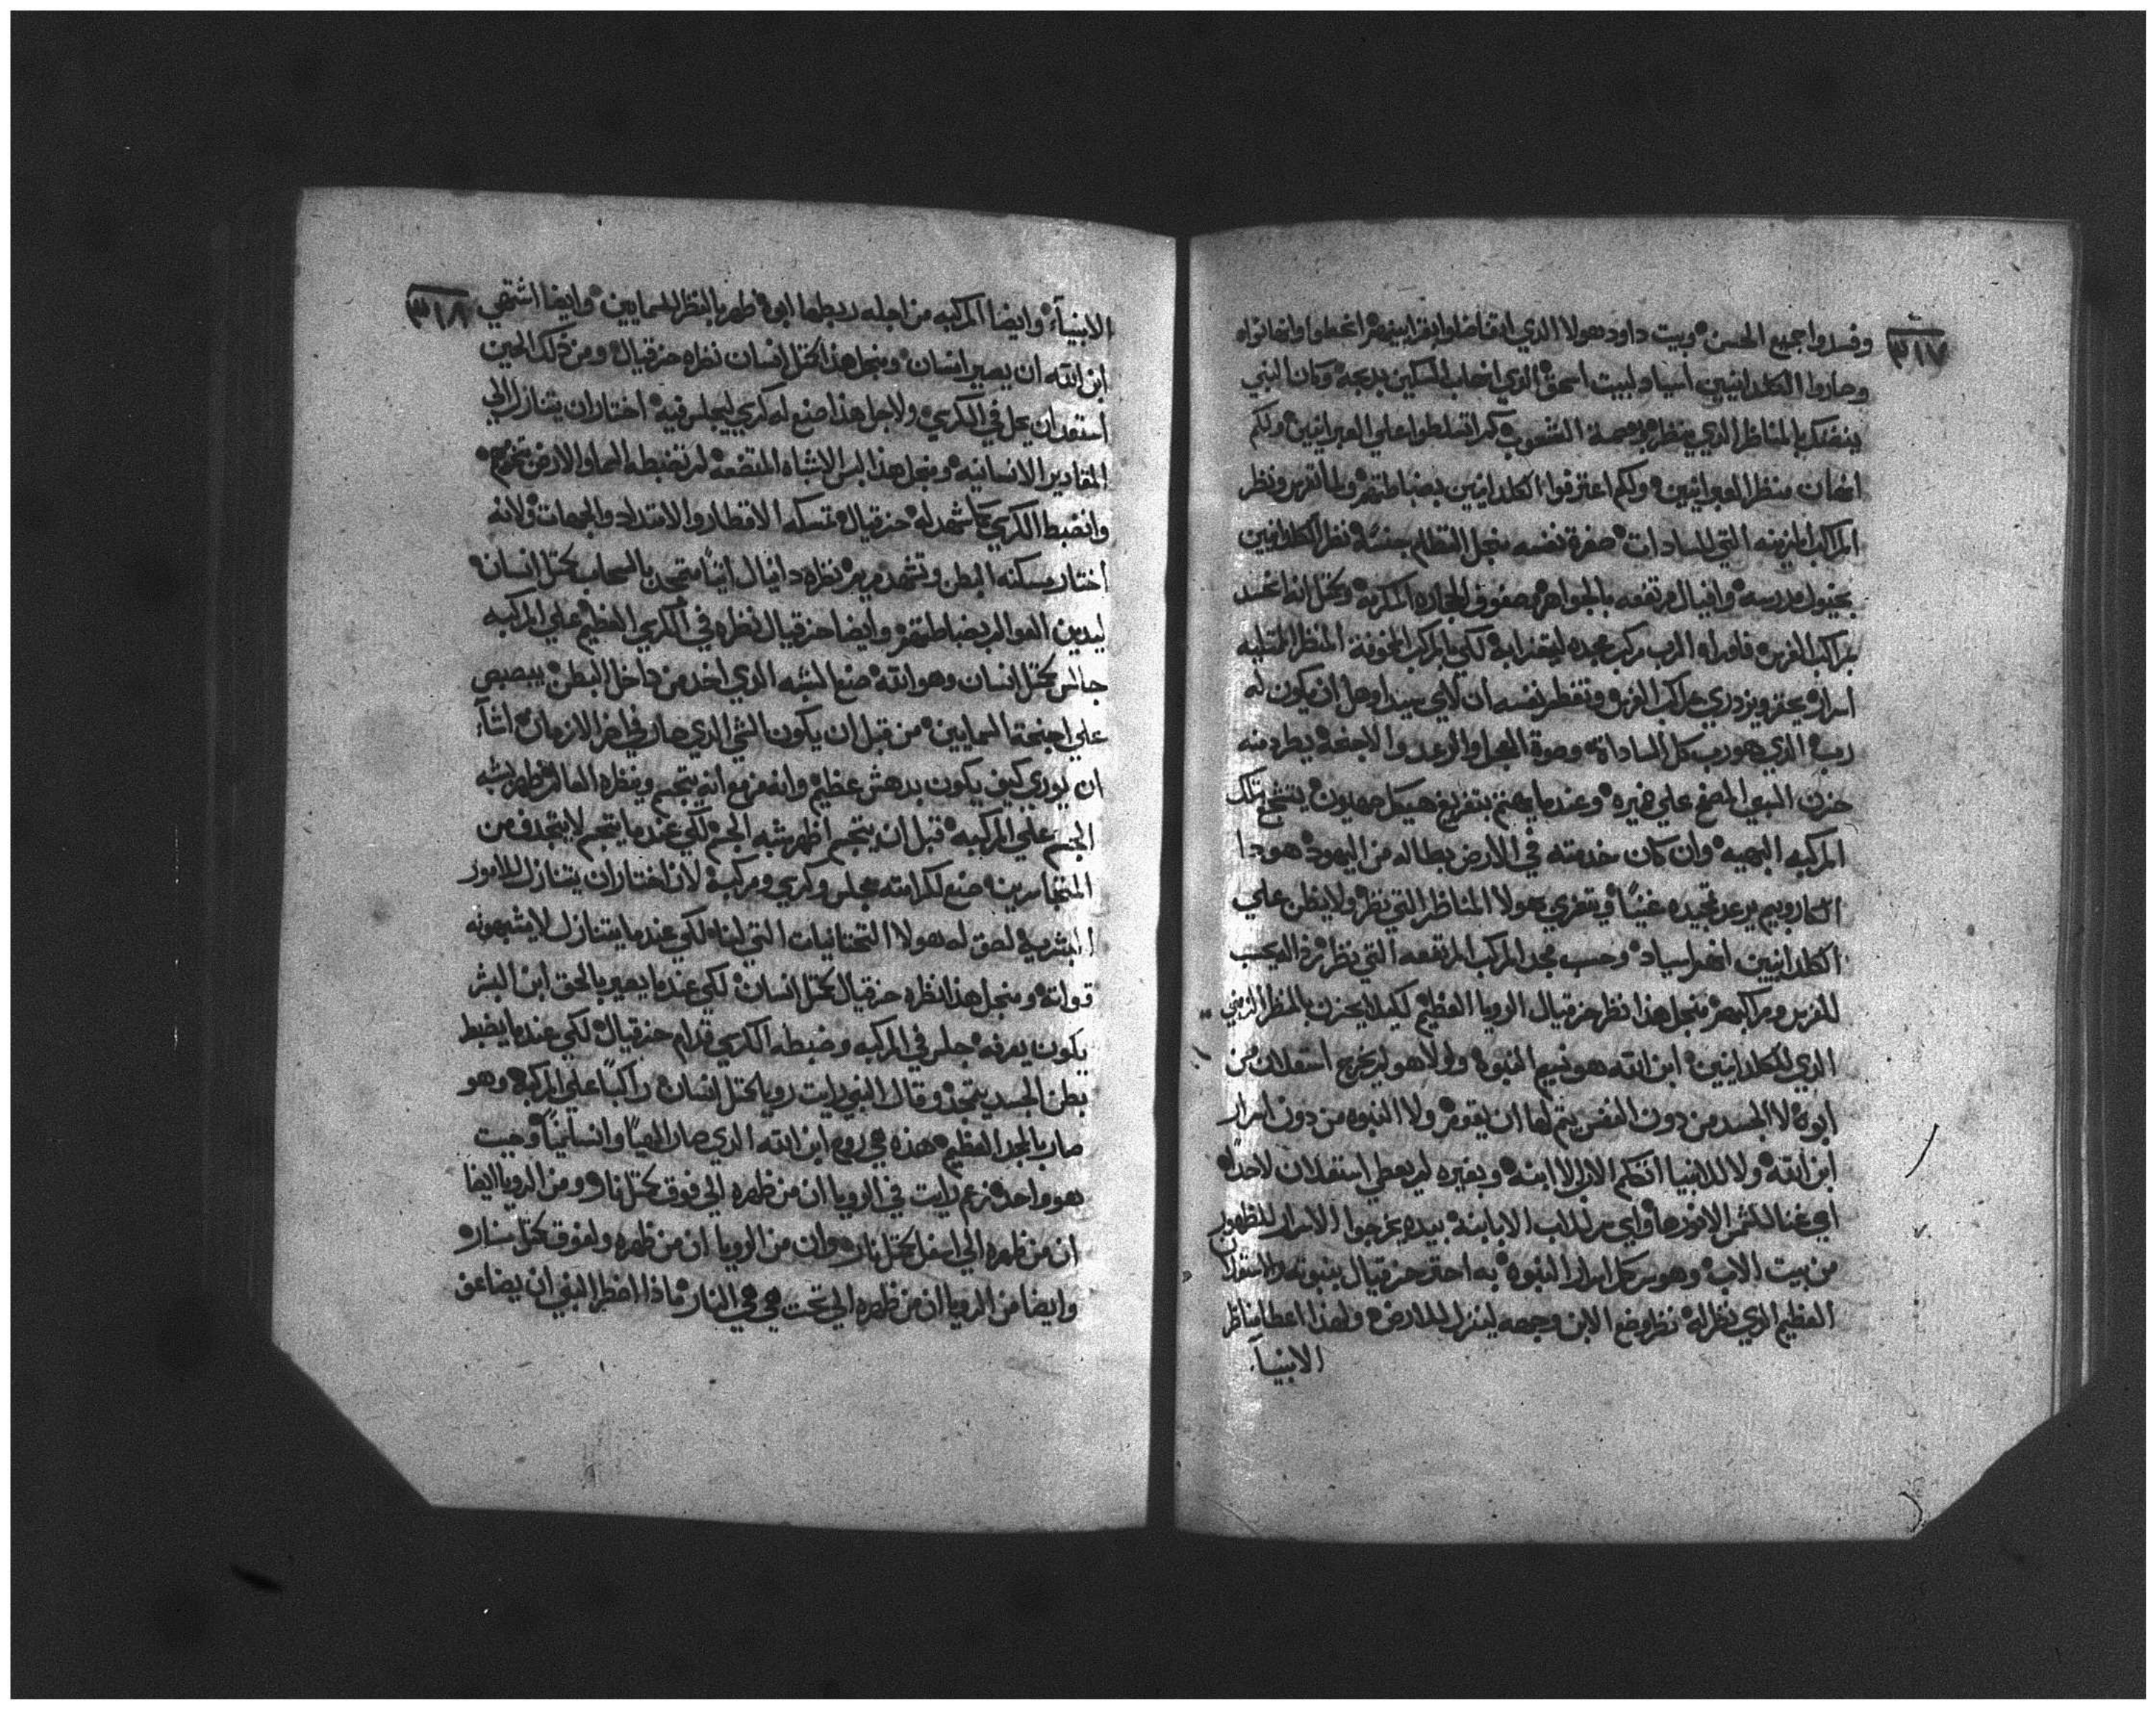 ٣١٧
وفسدوا جميع الحسن وبيت داود هولا الذي افتاضلوا بقرابينهم اخطوا وانهانواه
وصاروا الكلدانيين اسياد لبيت اسحق الذي اصحاب المسكين بدبحه وكان النبي
يتفكر بالمناظر الذي ينظره وبصمة الشعوب كم اتسلطوا علي العبرانيين ولكم
انهان منظر العبرانيين ولكم اعترفوا الكلدانيين بضباطتهم ولما تفرس ونظر
المراكب المزينه التي للسادات صغرة نفسه منجل التظالم
بخيول مدرسه وافيال مرتفعه بالجواهر وصفوف الحجاره المكرمه
بمراكب الفرس فاوراه الرب مركب مجده ليتعزا به لكي بالمركب المخوفة المنظر الممتليه
اسرار يحتقر ويزدري بمراكب الفرس
رب الذي هو رب كل السادات وصوة العجل والرعد والاجنحه يطرد منه
حزن السبي المضغ علي ضميره وعندما يهتم بتفريغ هيكل صهيون بتلك
المركبه البهيه وان كان خدمته في الارض بطاله من اليهود هودا
الكاروبيم يرعد تمجيده غنياً ويتعزي بهولا المناظر التي نظر ولا يظن علي
الكلدانيين انهم اسياد وحسب مجد المركب المرتفعه التي نظر
للفرس ومراكبهم منجل هذا نظر حزقيال الرويا العظيم لكيلا يحزن بالمنظر الزمني
الذي للكلدانيين ابن الله هو نسيم النبوه ولولا هو لم يخرج استعلان من
ابوه لا الجسد من دون النفس يتم لها ان يقوم ولا النبوه من دون اسرار
ابن الله ولا للانبيا اتكلم الاب الا ابنه وبغيره لم يعطي استعلان لاحدا
اي غنا للشمس الا نورها واي سر للاب الا بابنه بيده يخرجوا الاسرار للظهور
من بيت الاب وهو سر كل اسرار النبوه به احتد حزقيال بنبوته والاستعلان
العظيم الذي نظر له نظر وضع الابن وجهه لينزل للارض ولهذا اعطا مناظر
الانبيآ
٣١٨
الانبيآء وايضا المركبه من اجله ربطها ابوه ظهر بالمنظر للسمايين وايضا اشتهي
ابن الله ان يصير انسان ومنجل هذا كمثل انسان نظره حزقيال ومن ذلك الحين
استعد ان يحل في الكرسي ولاجل هذا صنع له كرسي ليجلس فيه اختار ان يتنازل الي
المقادير الانسانيه ومنجل هذا لبس الاشباه المتضعه لم تضبطه السما والارض
وانضبط الكرسي كما شهد له حزقيال تمسكه الاقطار والامتداد والجهات ولانه
اختار مسكنه البطن وتشهد مريم نظره دانيال ايضاً متمجد بالسحاب كمثل انسان
ليدين العوالم بضباطتهم وايضا حزقيال نظره في الكرسي العظيم علي المركبه
جالس كمثل انسان وهو الله صنع الشبه الذي اخد من داخل البطن يبصبص
علي اجنحة السمايين من قبل ان يكون الشي الذي صار في اخر الازمان اشآ
ان يوري كيف يكون بدهش عظيم وانه مزمع انه يتجسم وينظره العالم ظهر بشبه
الجسم علي المركبه قبل ان يتجسم اظهر شبه الجسم لكي عندما يتجسم لا يتجدف من
المتجاسرين صنع لكرامته مجلس وكرسي ومركبه لان اختار ان يتنازل للامور
البشريه لصق له هولا التحتانيات التي لنا لكي عندما يتنازل لا يشبهونه
قواته ومنجل هذا نظره حزقيال كمثل انسان لكي عندما يصير بالحق ابن البشر
يكون يعرفه جلس في المركبه وضبطه الكرسي قدام حزقيال لكي عندما يضبط
بطن الجسد يتمجد وقال النبي رايت رويا كمثل انسان راكباً علي المركبه وهو
صار بالمجد العظيم هذه هي روح ابن الله الذي صار الهياً وانسانياً وحيث
هو واحد زعم رايت في الرويا ان من ظهره الي فوق كمثل نار ومن الرويا ايضا
ان من ظهره الي اسفل كمثل نار وان من الرويا ان من ظهره ولفوق كمثل منار
وايضا من الرويا ان من ظهره الي تحت هي هي النار ماذا اضطر النبي ان يضاعف